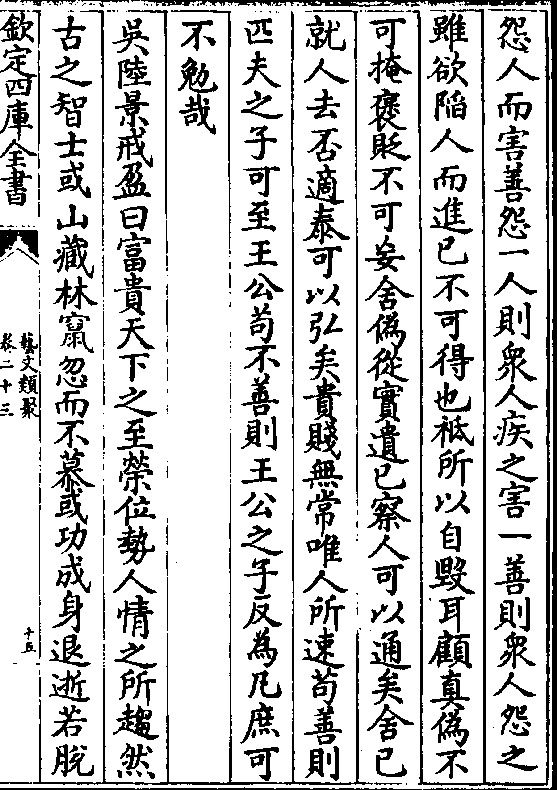 怨人而害善怨一人則衆人疾之害一善則衆人怨之
雖欲陷人而進已不可得也袛所以自毁耳顧真偽不
可掩褒貶不可妄舍偽從實遺已察人可以通矣舍已
就人去否適泰可以弘矣貴賤無常唯人所速苟善則
匹夫之子可至王公苟不善則王公之子反為凡庶可
不勉哉
吳陸景戒盈曰富貴天下之至榮位勢人情之所趨然
古之智士或山藏林竄忽而不慕或功成身退逝若脫
欽定四庫全書
藝文類聚
卷二十三
十五